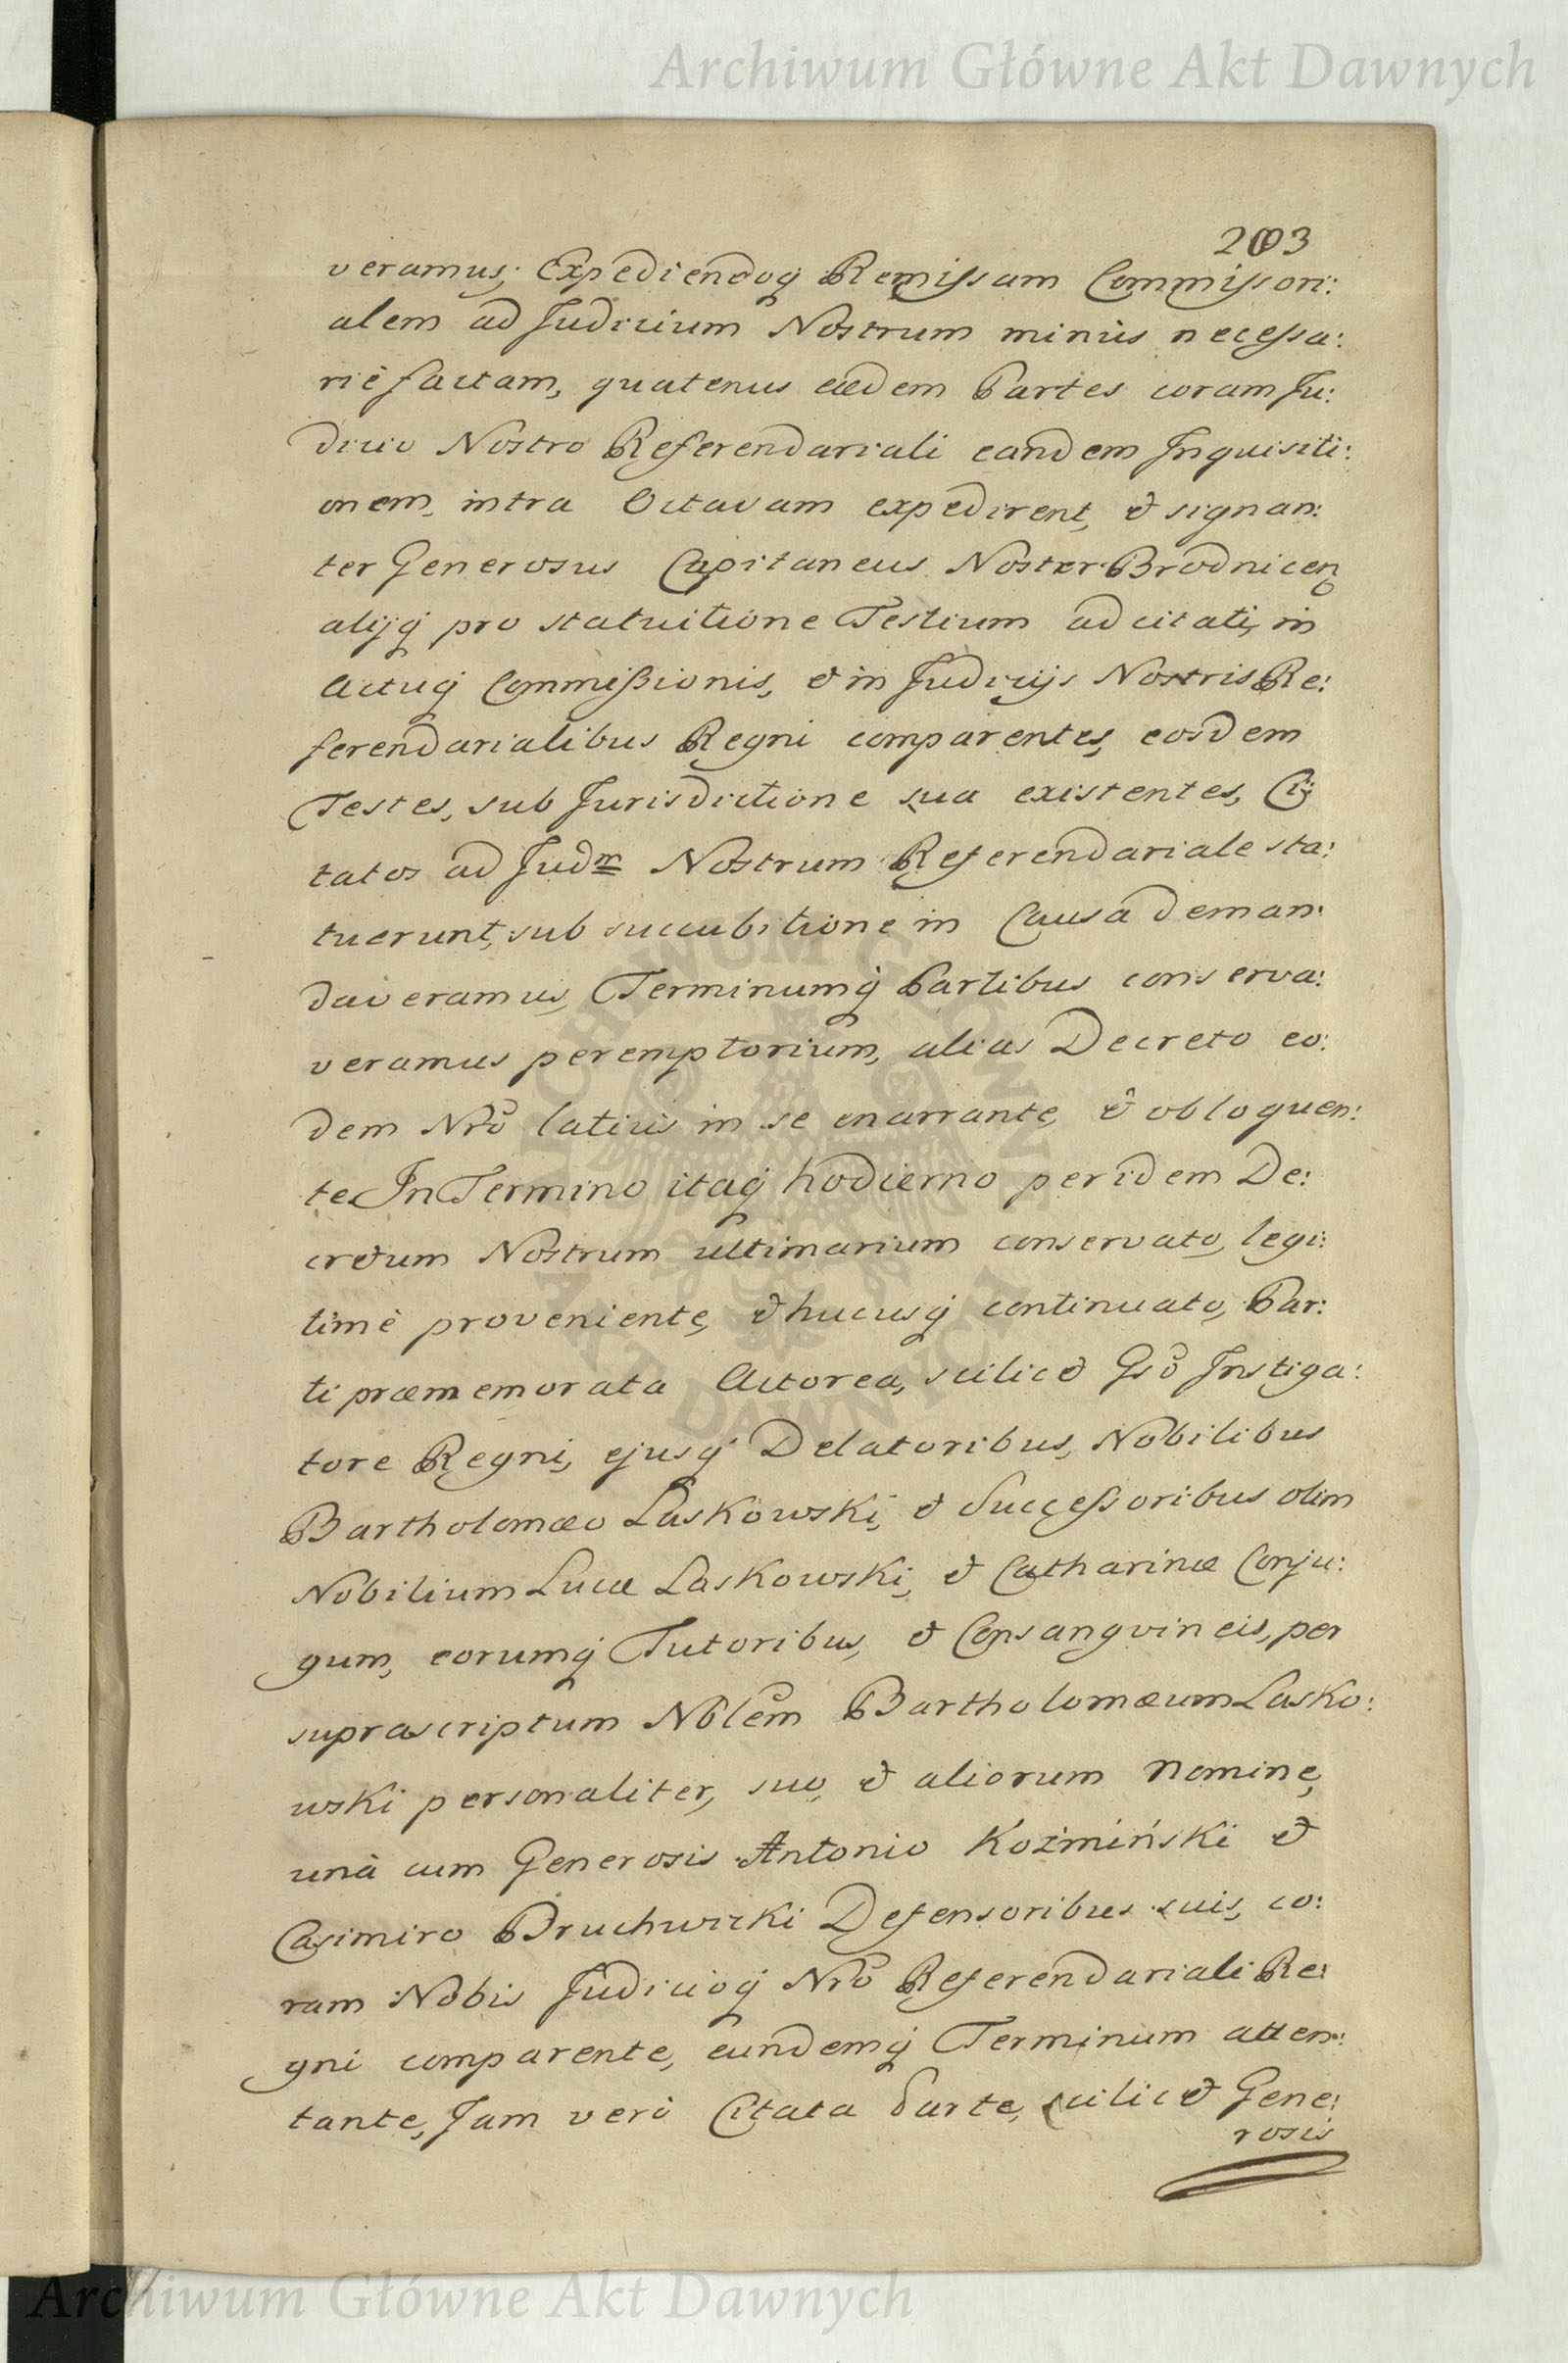 Archiwum Główne Akt Dawnych
203
veramus; Expediendoq Remissam Commissori:
alem ad Judicium Nostrum minùs necessa:
riè factam, quatenus eædem Partes coram Ju:
dicio Nostro Referendariali eandem Inquisiti:
onem, intra Octavam expedirent, et signan:
ter Generosus Capitaneus Noster Brodnicen
alijq pro statuitione Testium adcitati, in
Actuq Commissionis, et in Judicijs Nostris Re:
ferendarialibus Regni comparentes, eosdem
Testes, sub Jurisdictione sua existentes, Ci:
tatos ad Judm Nostrum Referendariale sta:
tuerunt, sub succubitione in Causa deman:
daveramus, Terminumq Partibus conserva:
veramus peremptorium, alias Decreto eo:
dem Nro latius in se enarrante, et obloquen:
te In Termino itaq hodierno per idem De:
cretum Nostrum ultimarium conservato, legi:
timè proveniente, et hucusq continuato, Par:
ti præmemorata Actorea, scilicet Gso Instiga:
tore Regni, ejusq Delatoribus, Nobilibus
Bartholomæo Laskowski, et Successoribus olim
Nobilium Lucæ Laskowski, et Catharinæ Conju:
gum, eorumq Tutoribus, et Consangvineis, per
suprascriptum Nblem Bartholomæum Lasko:
wski personaliter, suo, et aliorum Nomine,
unà cum Generosis Antonio Koźmiński et
Casimiro Bruchwicki Defensoribus suis, co:
ram Nobis Judicioq Nro Referendariali Re:
gni comparente, eundemq Terminum atten:
tante, Jam verò Citata Parte, scilicet Gene:
rosis
ARCHIWUM GŁÓWNE
AKT DAWNYCH
Archiwum Główne Akt Dawnych